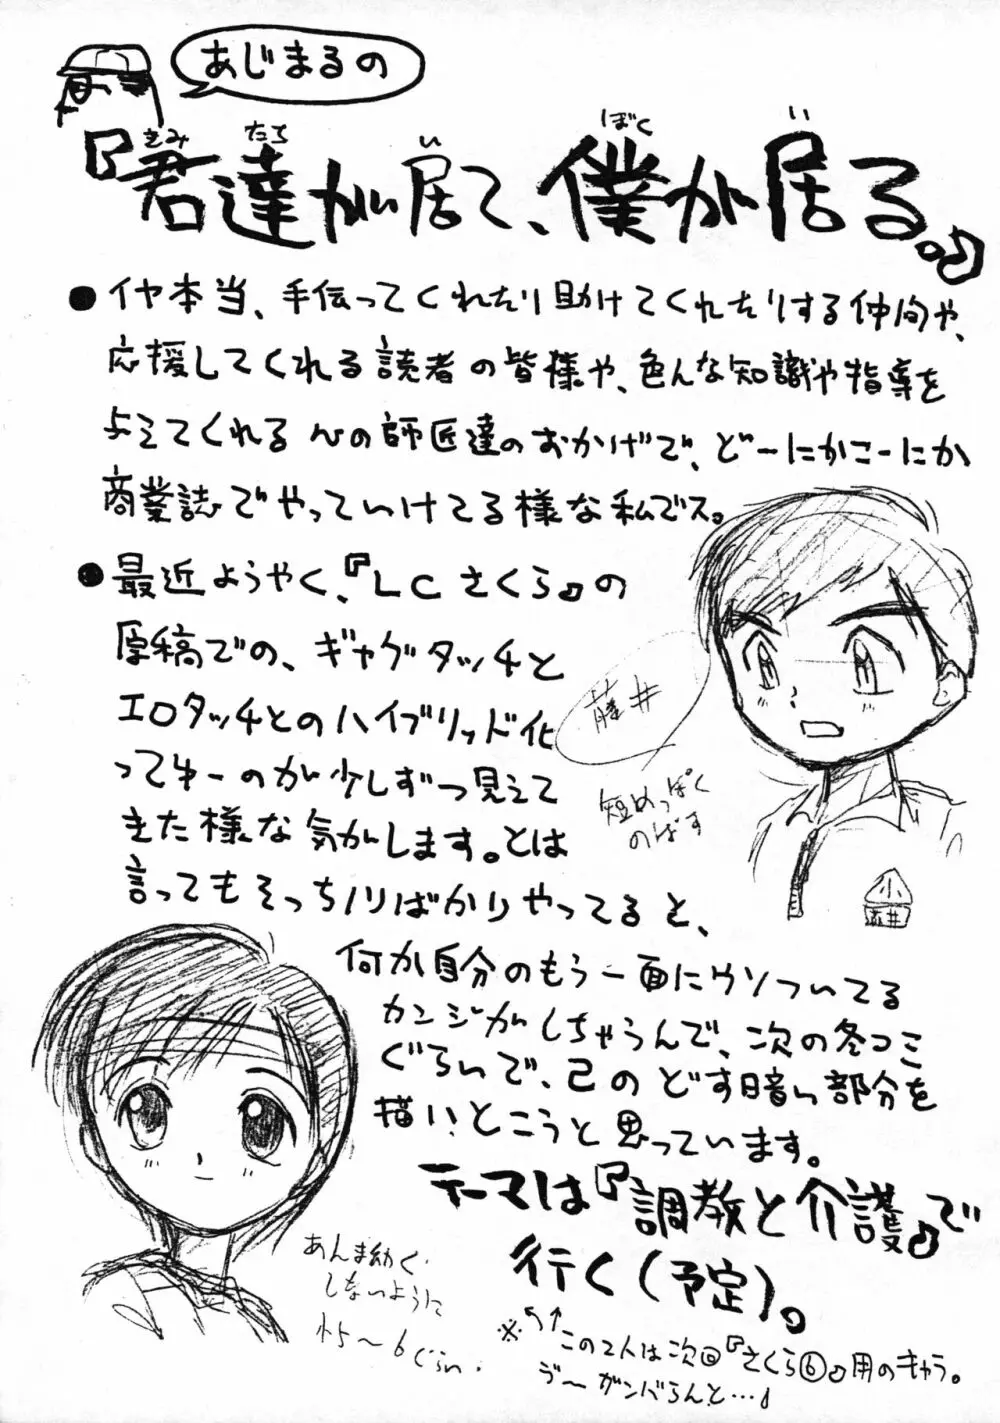 あじまるの
『君達が居て、僕が居る。』
きみ たち い ぼく い
●イヤ本当、手伝ってくれたり助けてくれたりする仲間や、
応援してくれる読者の皆様や、色んな知識や指導を
与えてくれる心の師匠達のおかげで、どーにかこーにか
商業誌でやっていけてる様な私でス。
●最近ようやく、『LCさくら』の
原稿での、ギャグタッチと
エロタッチとのハイブリッド化
ってゆーのが少しずつ見えて
きた様な気がします。とは
言ってもそっちノリばかりやってると、
何か自分のもう一面にウソついてる
カンジがしちゃうんで、次の冬コミ
ぐらいで、己のどす暗い部分を
描いとこうと思っています。
テーマは『調教と介護』で
行く(予定)。
※この2人は次回『さくら⑥』用のキャラ。
ガンバらんと…♪
藤井
短めっぽく
のばす
小
あんま幼く
しないように
15〜6ぐらい.